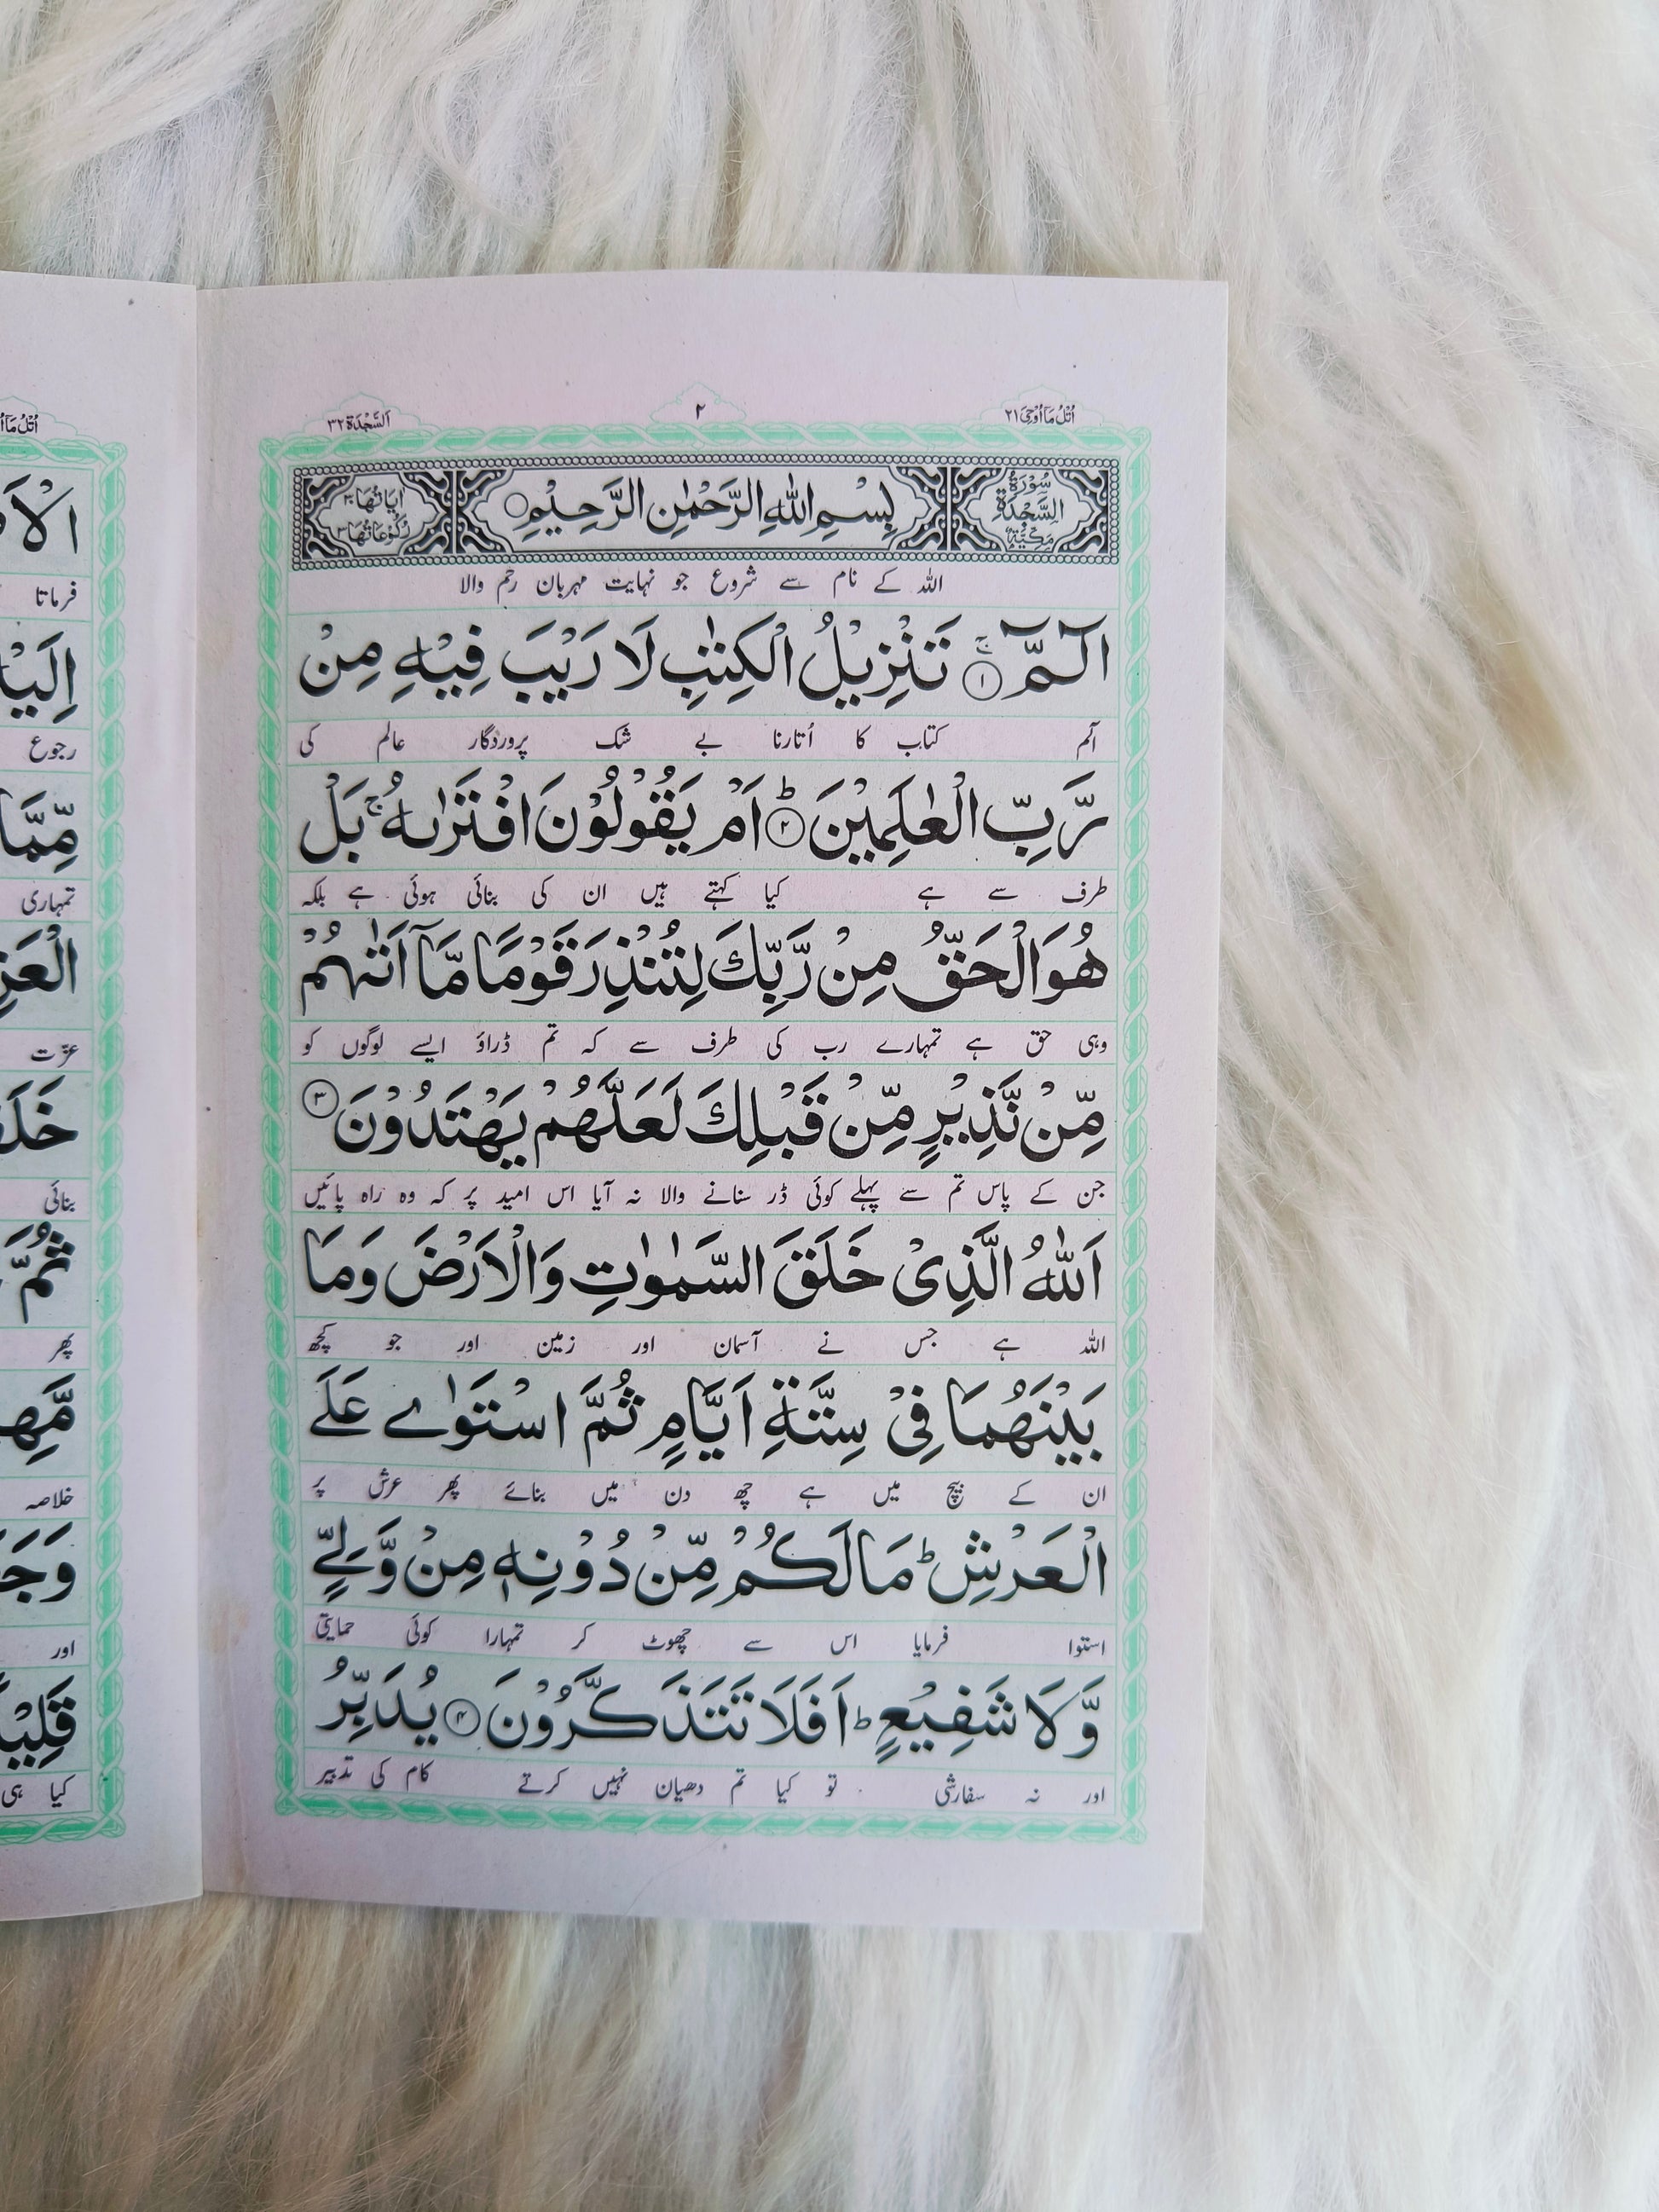 اُتْلُ مَآ اُوْحِیَ ۲۱
۲
اَلسَّجْدَة ۳۲
سُوْرَةُ السَّجْدَةِ مَكِّيَّةٌ
بِسْمِ اللّٰهِ الرَّحْمٰنِ الرَّحِيْمِ
اٰيَاتُهَا ۳۰ رُكُوْعَاتُهَا ۳
اللہ کے نام سے شروع جو نہایت مہربان رحم والا
الٓمّٓ ۚ ۝۱ تَنْزِيْلُ الْكِتٰبِ لَا رَيْبَ فِيْهِ مِنْ
الٓم کتاب کا اُتارنا بے شک پروردگار عالم کی
رَّبِّ الْعٰلَمِيْنَ ؕ ۝۲ اَمْ يَقُوْلُوْنَ افْتَرٰىهُ ۚ بَلْ
طرف سے ہے کیا کہتے ہیں ان کی بنائی ہوئی ہے بلکہ
هُوَ الْحَقُّ مِنْ رَّبِّكَ لِتُنْذِرَ قَوْمًا مَّاۤ اَتٰىهُمْ
وہی حق ہے تمہارے رب کی طرف سے کہ تم ڈراؤ ایسے لوگوں کو
مِّنْ نَّذِيْرٍ مِّنْ قَبْلِكَ لَعَلَّهُمْ يَهْتَدُوْنَ ۝۳
جن کے پاس تم سے پہلے کوئی ڈر سنانے والا نہ آیا اس امید پر کہ وہ راہ پائیں
اَللّٰهُ الَّذِيْ خَلَقَ السَّمٰوٰتِ وَالْاَرْضَ وَمَا
اللہ ہے جس نے آسمان اور زمین اور جو کچھ
بَيْنَهُمَا فِيْ سِتَّةِ اَيَّامٍ ثُمَّ اسْتَوٰے عَلَے
ان کے بیچ میں ہے چھ دن میں بنائے پھر عرش پر
الْعَرْشِ ؕ مَا لَكُمْ مِّنْ دُوْنِهٖ مِنْ وَّلِيٍّ
استوا فرمایا اس سے چھوٹ کر تمہارا کوئی حمایتی
وَّلَا شَفِيْعٍ ؕ اَفَلَا تَتَذَكَّرُوْنَ ۝۴ يُدَبِّرُ
اور نہ سفارشی تو کیا تم دھیان نہیں کرتے کام کی تدبیر
فرماتا
رجوع
مِّمَّا
تمہاری
عزت
بنائی
ثُمَّ
پھر
خلاصہ
اور
کیا ہی